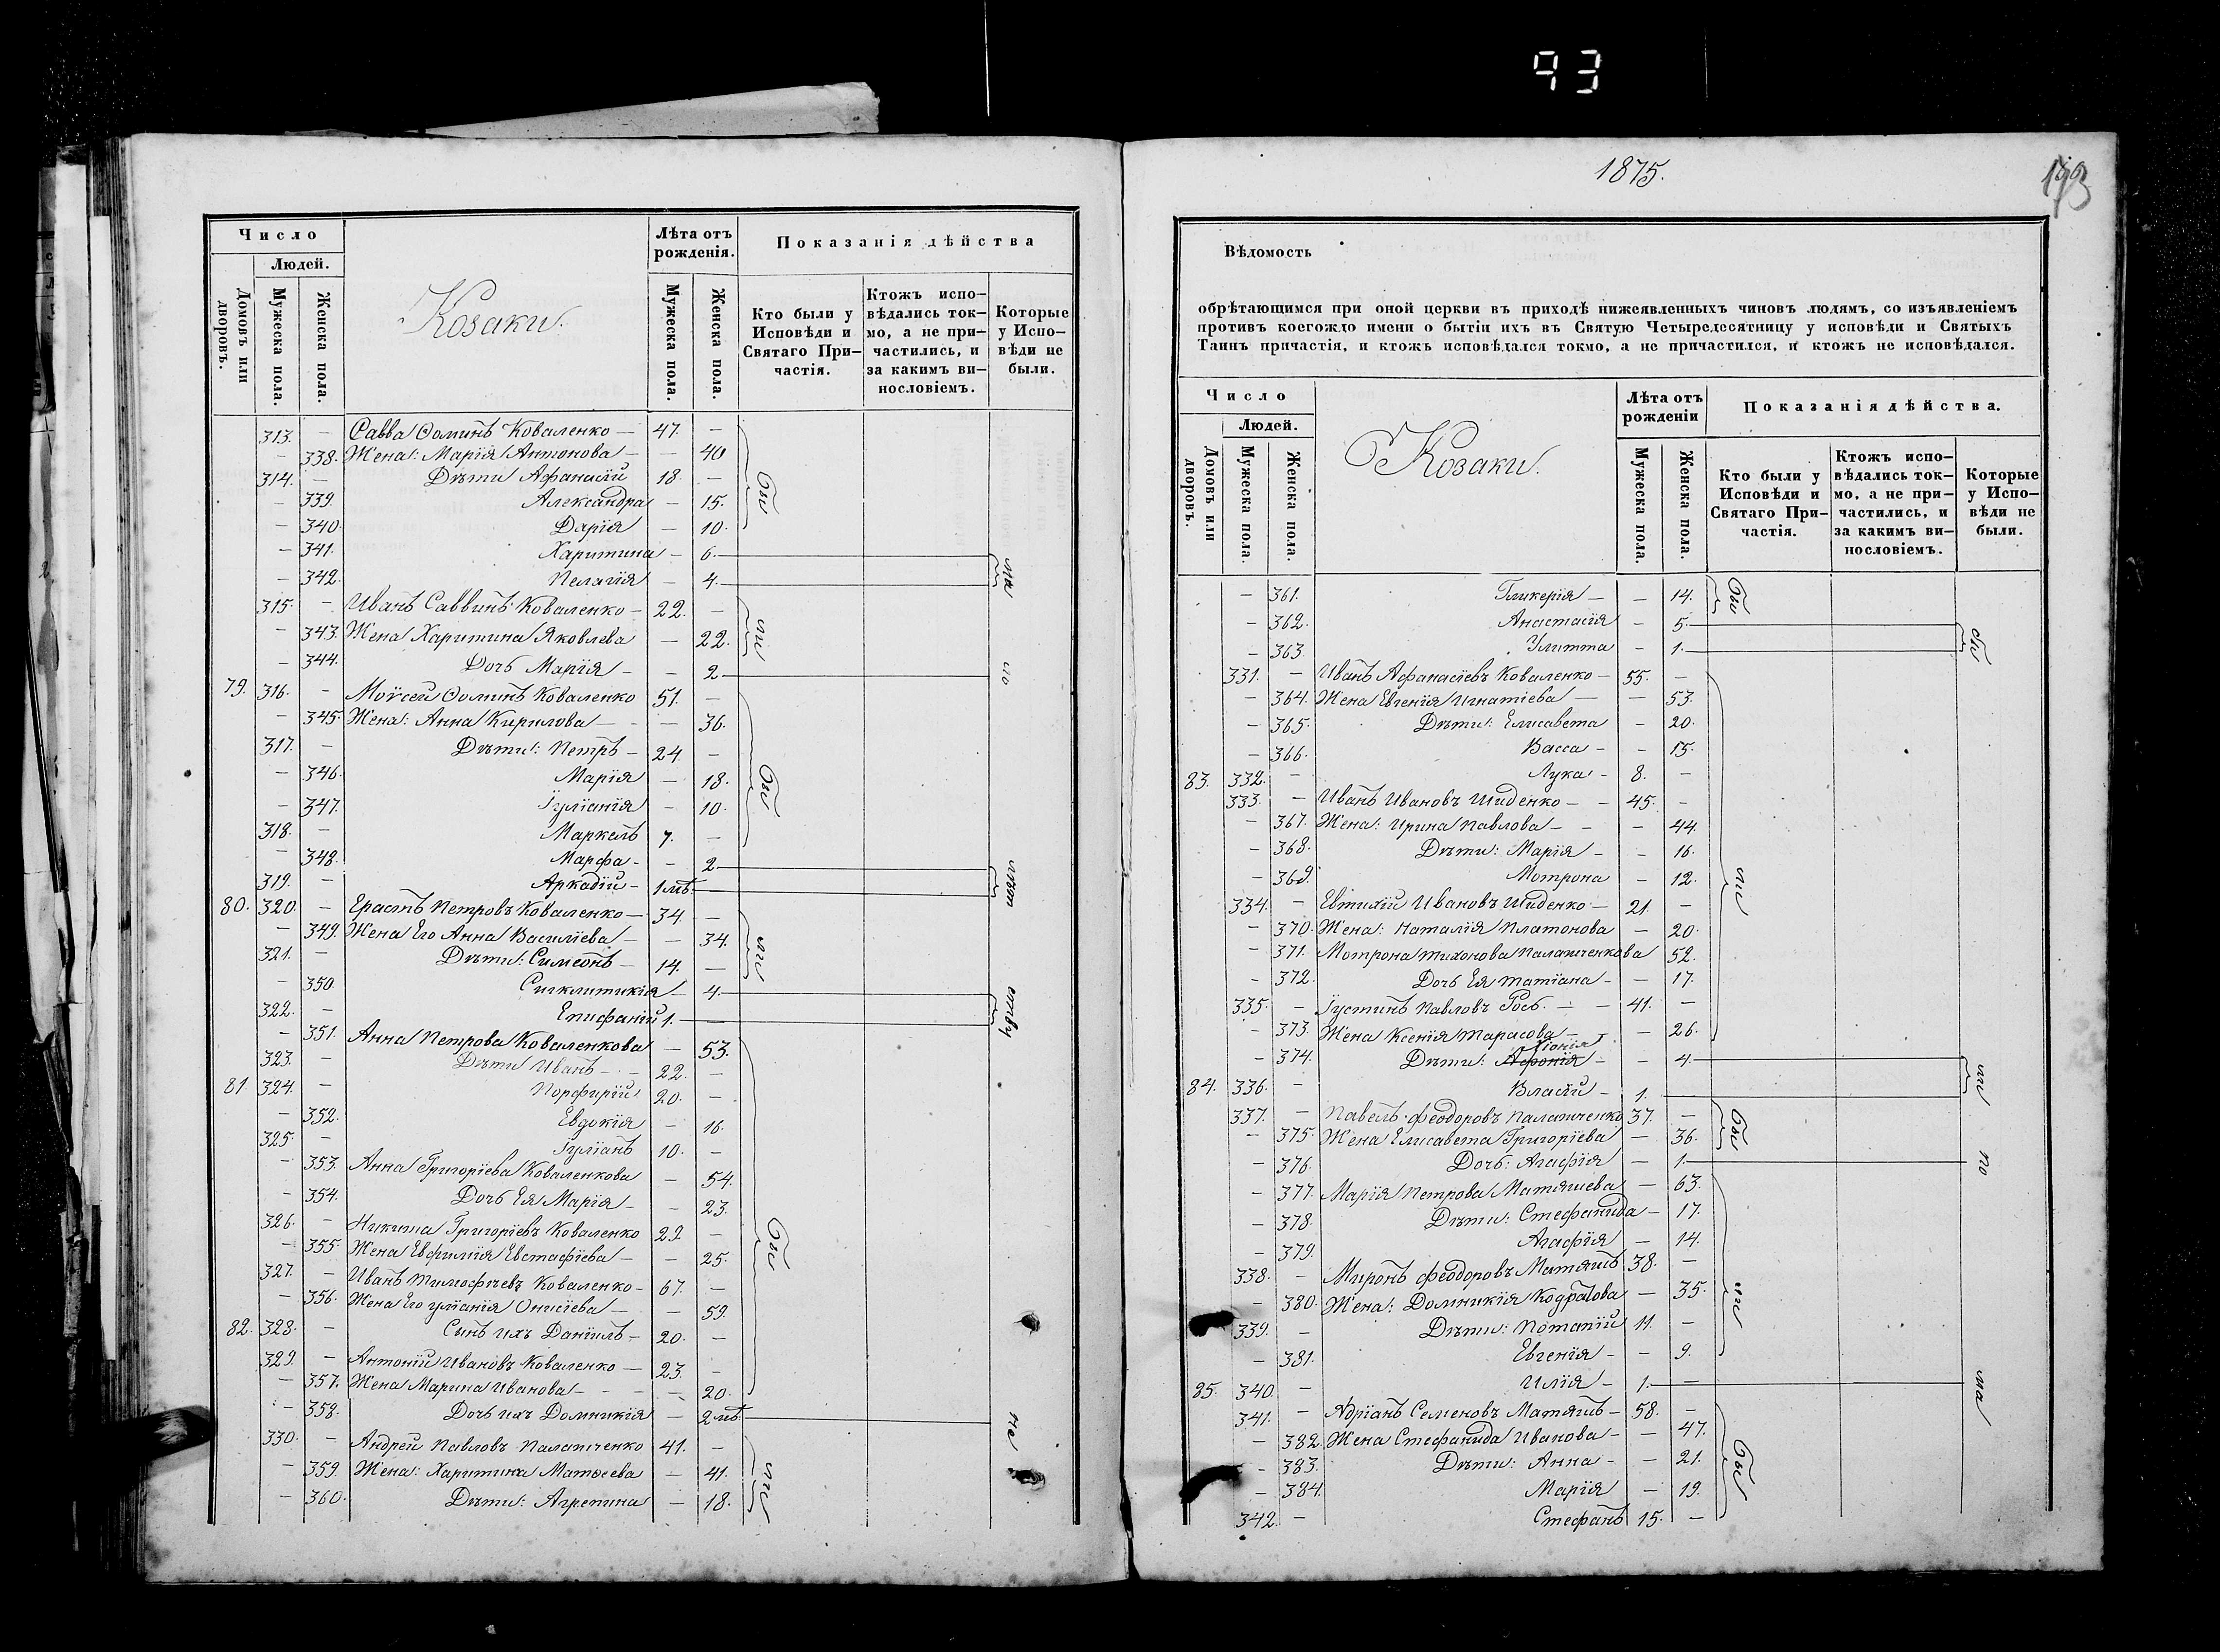 93
Число
Людей.
Домовъ или дворовъ.
Мужеска пола.
Женска пола.
Козаки.
Лѣта отъ рожденія.
Мужеска пола.
Женска пола.
Показанія дѣйства
Кто были у Исповѣди и Святаго Причастія.
Ктожъ исповѣдались токмо, а не причастились, и за какимъ винословіемъ.
Которые у Исповѣди не были.
313. — Савва Ѳоминъ Коваленко — 47. —
— 338. Жена: Марія Антонова — — 40
314. — Дѣти Афанасій 18. —
— 339. Александра — 15.
— 340. Дарія — 10.
— 341. Харитина — 6.
— 342. Пелагія — 4.
315. — Иванъ Саввинъ Коваленко — 22. —
— 343. Жена Харитина Яковлева — 22.
— 344. Дочь Марія — — 2
79. 316. — Моѵсей Ѳоминъ Коваленко 51. —
— 345. Жена: Анна Кирилова — — 36.
317. — Дѣти: Петръ — 24 —
— 346. Марія — 18.
— 347. Іуліанія — 10.
318. — Маркелъ 7. —
— 348. Марфа — — 2
319. — Аркадій — 1 мѣ.
80. 320. — Ерастъ Петровъ Коваленко — 34. —
— 349. Жена Его Анна Василіева — — 34.
321. — Дѣти: Симеонъ — 14. —
— 350. Сигклитикія — 4.
322. — Епифаній 1. —
— 351. Анна Петрова Коваленкова — 53.
323. — Дѣти Иванъ — 22. —
81 324. — Порфирій 20. —
— 352. Евдокія — 16.
325. — Іуліанъ 10. —
— 353. Анна Григоріева Коваленкова — 54.
— 354. Дочь Ея Марія — — 23.
326. — Никита Григоріевъ Коваленко 29. —
— 355 Жена Евфимія Евстафіева — — 25.
327. — Иванъ Тимофѣевъ Коваленко — 67. —
— 356. Жена Его Іуліанія Онисіева — — 59.
82. 328. — Сынъ ихъ Даніилъ — 20. —
329. — Антоній Ивановъ Коваленко — 23. —
— 357. Жена Марина Иванова — — — 20.
— 358. Дочь ихъ Домникія — 2 мѣ.
330. — Андрей Павловъ Палатченко 41. —
— 359. Жена: Харитина Матѳеева — 41.
— 360. Дѣти: Агрепина — 18.
бы
ли
бы
ли
бы
ли
ма
ло
лѣт
ству
не
1875.
Вѣдомость
обрѣтающимся при оной церкви въ приходѣ нижеявленныхъ чиновъ людямъ, со изъявленіемъ
противъ коегождо имени о бытіи ихъ въ Святую Четыредесятницу у исповѣди и Святыхъ
Таинъ причастія, и ктожъ исповѣдался токмо, а не причастился, и ктожъ не исповѣдался.
Число
Людей.
Домовъ или дворовъ.
Мужеска пола.
Женска пола.
Козаки.
Лѣта отъ рожденіи
Мужеска пола.
Женска пола.
Показанія дѣйства.
Кто были у Исповѣди и Святаго Причастія.
Ктожъ исповѣдались токмо, а не причастились, и за какимъ винословіемъ.
Которые у Исповѣди не были.
— 361. Гликерія — — 14.
— 362. Анастасія — 5.
— 363. Улитта — 1.
331. — Иванъ Афанасіевъ Коваленко — 55. —
— 364. Жена Евгенія Игнатіева — — 53.
— 365. Дѣти: Елисавета — 20.
— 366. Васса — — 15.
83. 332. — Лука — 8. —
333. — Иванъ Ивановъ Шиденко — — 45. —
— 367. Жена: Ирина Павлова — — — 44.
— 368. Дѣти: Марія — — 16.
— 369. Мотрона — 12.
334. — Евтихій Ивановъ Шиденко — 21. —
— 370. Жена: Наталія Платонова — 20.
— 371. Мотрона Тихонова Палатченкова 52.
— 372. Дочь Ея Татіана — — 17.
335. — Іустинъ Павловъ Рось — — 41. —
— 373. Жена Ксенія Тарасова — — 26.
— 374. Дѣти: Афонія — — 4.
84. 336. — Власій — 1. —
337. — Павелъ Феодоровъ Палатченко 37. —
— 375. Жена Елисавета Григоріева — 36.
— 376. Дочь: Агафія — 1.
— 377. Марія Петрова Матяшева — 63.
— 378. Дѣти: Стефанида — 17.
— 379. Агафія — 14.
338. — Миронъ Феодоровъ Матяшъ 38. —
— 380. Жена: Домникія Кодратова — 35.
339. — Дѣти: Потапій 11. —
— 381. Евгенія — — 9.
85. 340. — Илія — 1. —
341. — Адріанъ Семеновъ Матяшъ — 58. —
— 382. Жена Стефанида Иванова — — 47.
— 383. Дѣти: Анна — — 21.
— 384. Марія — 19.
342. — Стефанъ 15. —
бы
ли
бы
ли
бы
бы
ли
по
ма